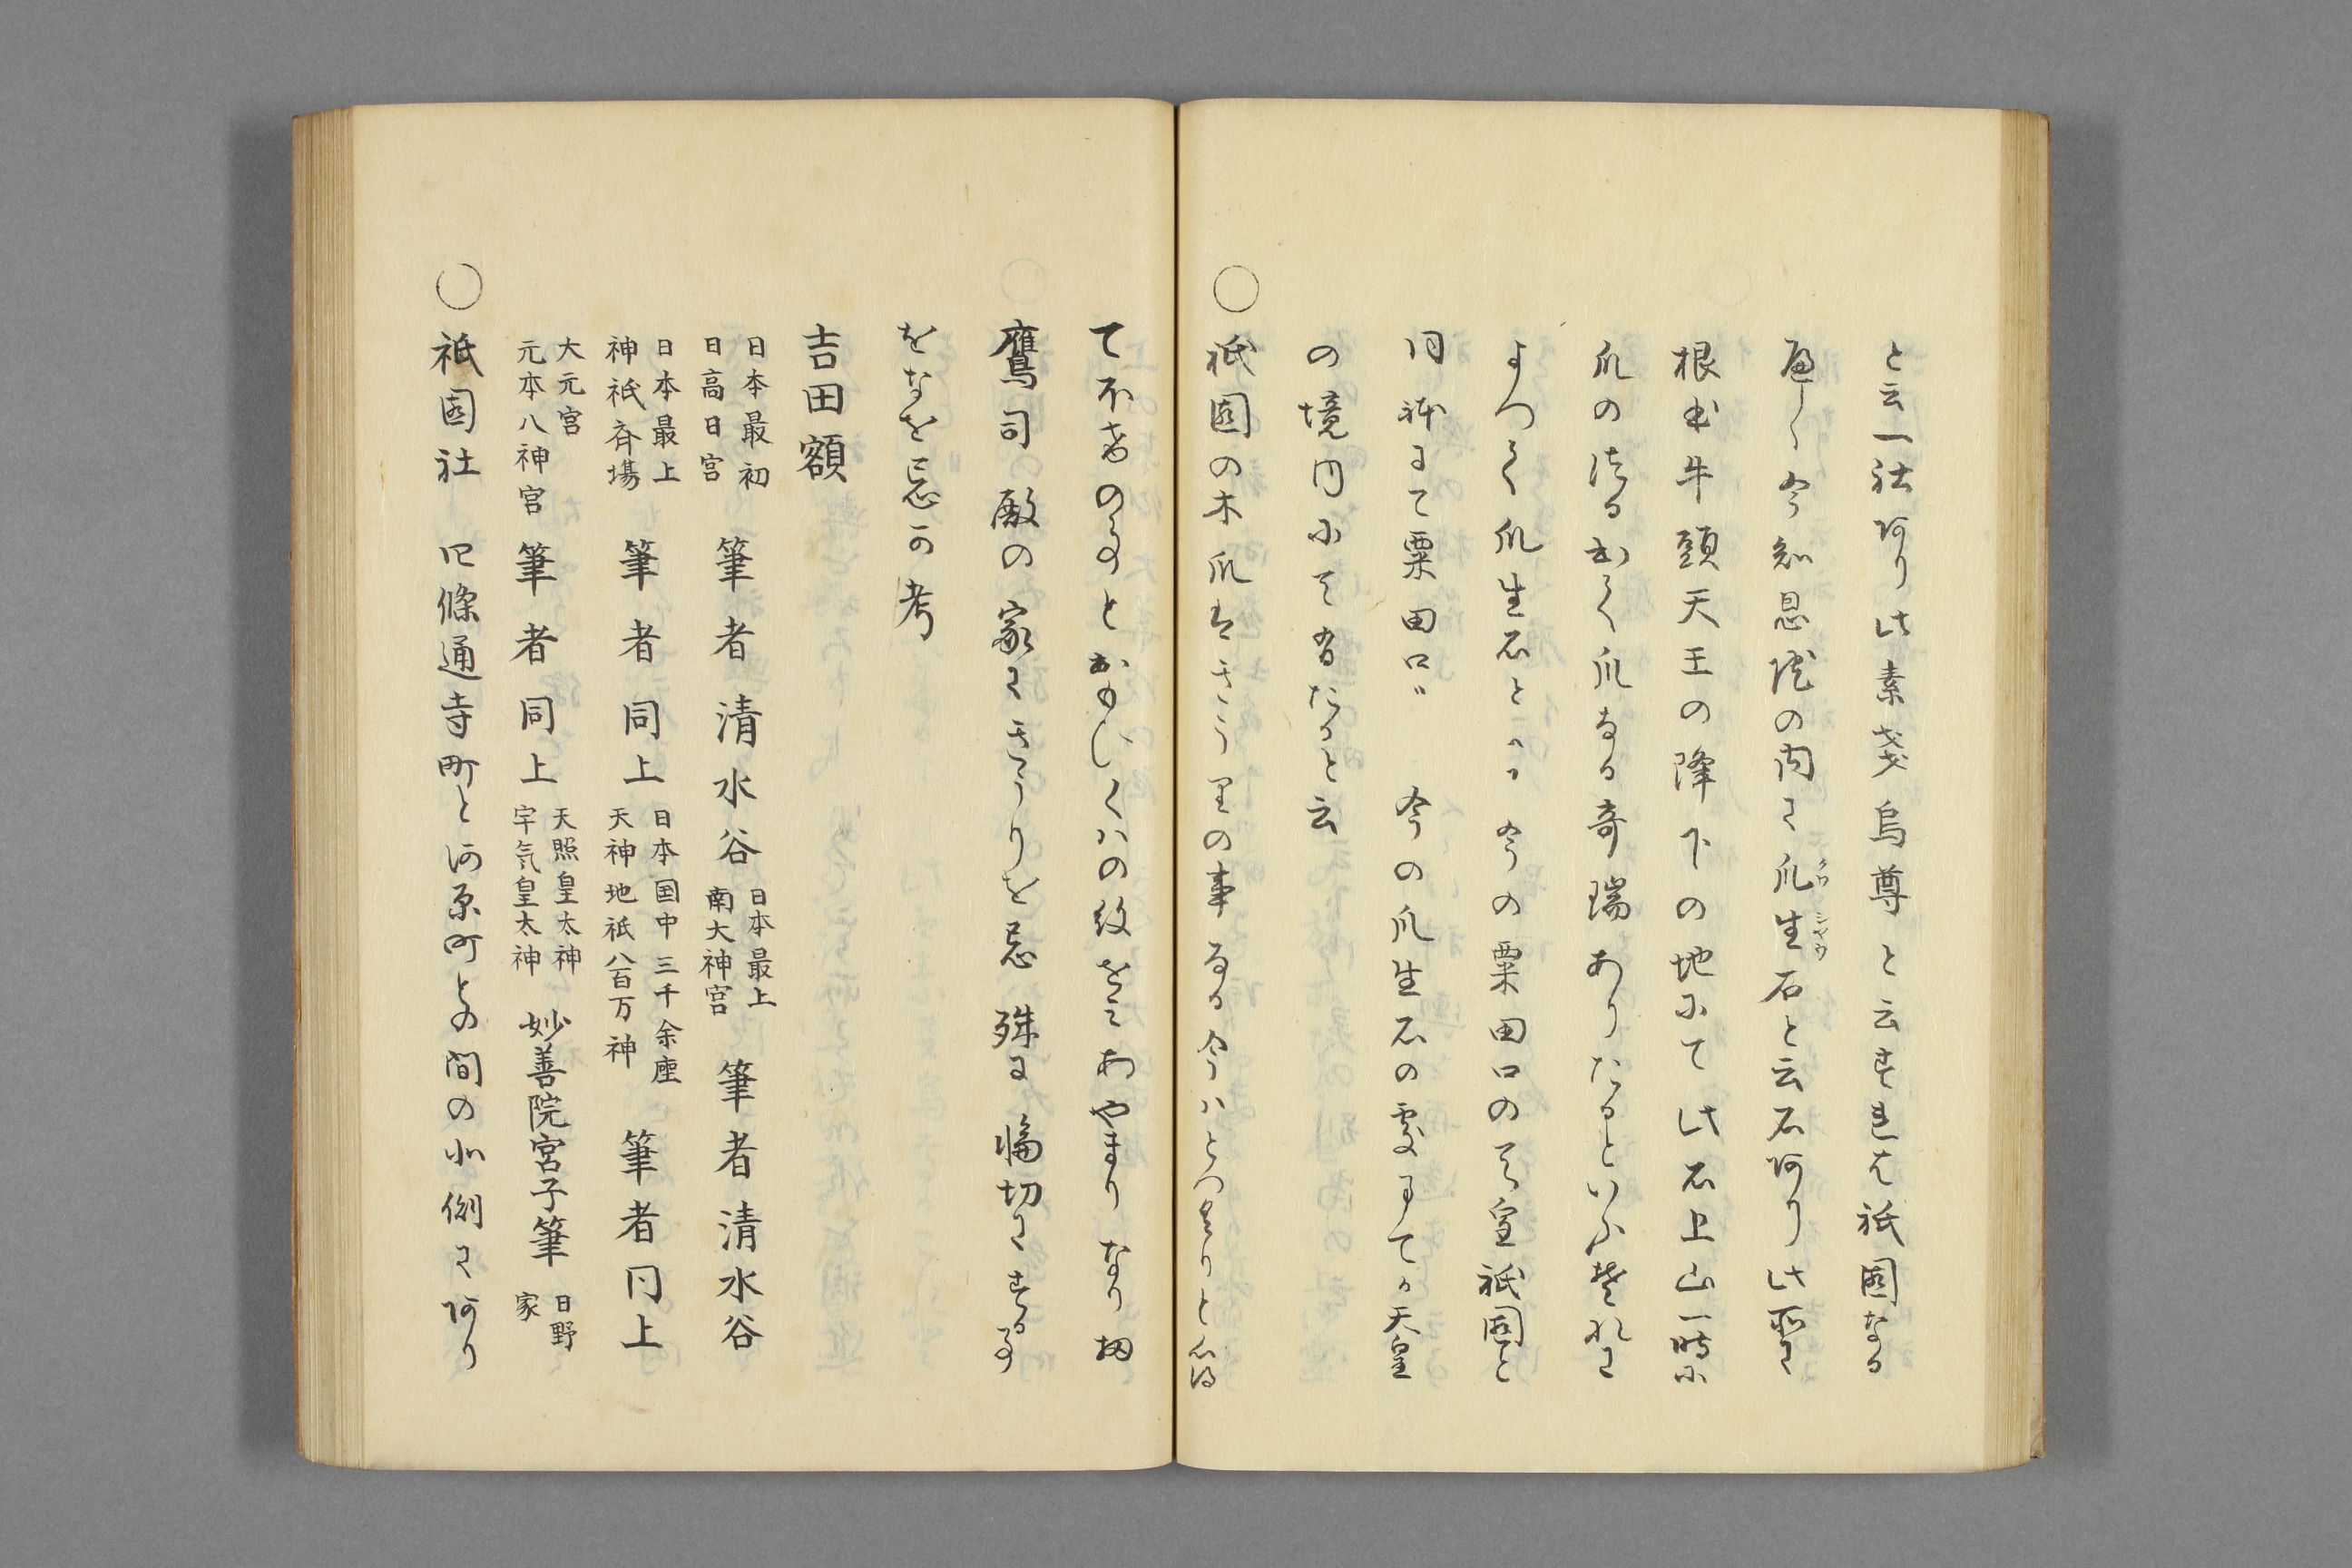 と云一社阿り此素戔烏尊と云すれは祇園なる
へし今知恩院の内に爪生石と云石阿り此所に
クワ シヤウ
根本牛頭天王の降下の地にて此石上山一時に
爪のはるおく爪なる奇瑞ありたるといふそれに
よつて爪生石とか今の粟田口の天皇祇園と
同神にて粟田口
今の爪生石の處まてか天皇
の境内にて有たると云
○祇園の木爪はきうりの事なる今ハとつきりと心得
て不者のことおゆしくハの紋をミあやまりなり扨
鷹司殿の家にきうりを忌殊に懐切にする事
をなを忌可考
吉田額
日本最初
日高日宮 筆者 清水谷 日本最上
南大神宮 筆者 清水谷
日本最上
神祇斉場 筆者 同上 日本国中三千余座
天神地祇八百万神 筆者 同上
大元宮
元本八神宮 筆者 同上 天照皇太神
宇気皇太神 妙善院宮子筆 日野
家
○祇園社 四條通寺町と河原町との間の北側に阿り